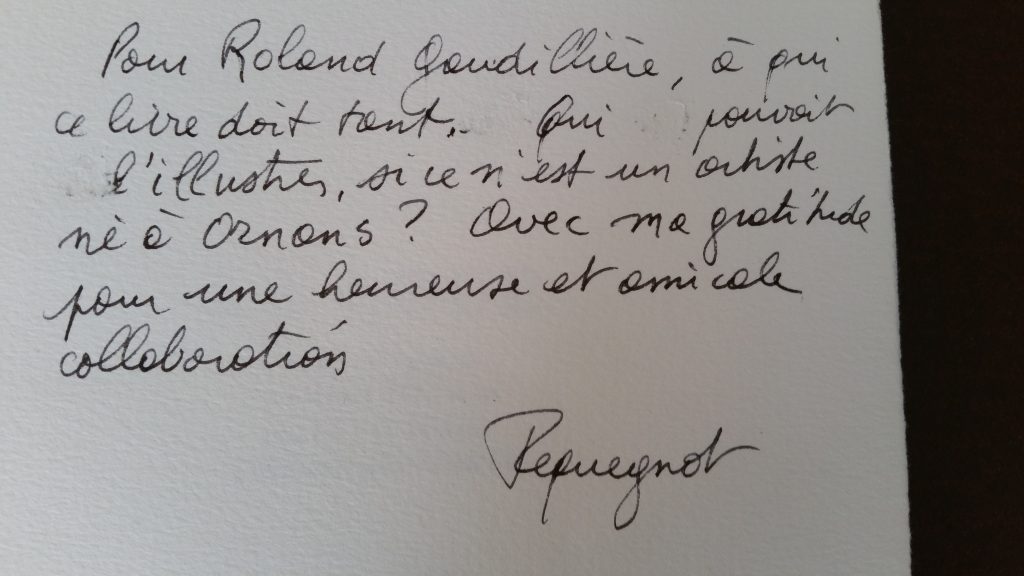 Pour Roland Gaudillière, à qui
ce livre doit tant. Qui pouvait
l'illustrer, si ce n'est un artiste
né à Ornans ? Avec ma gratitude
pour une heureuse et amicale
collaboration
Pequegnot